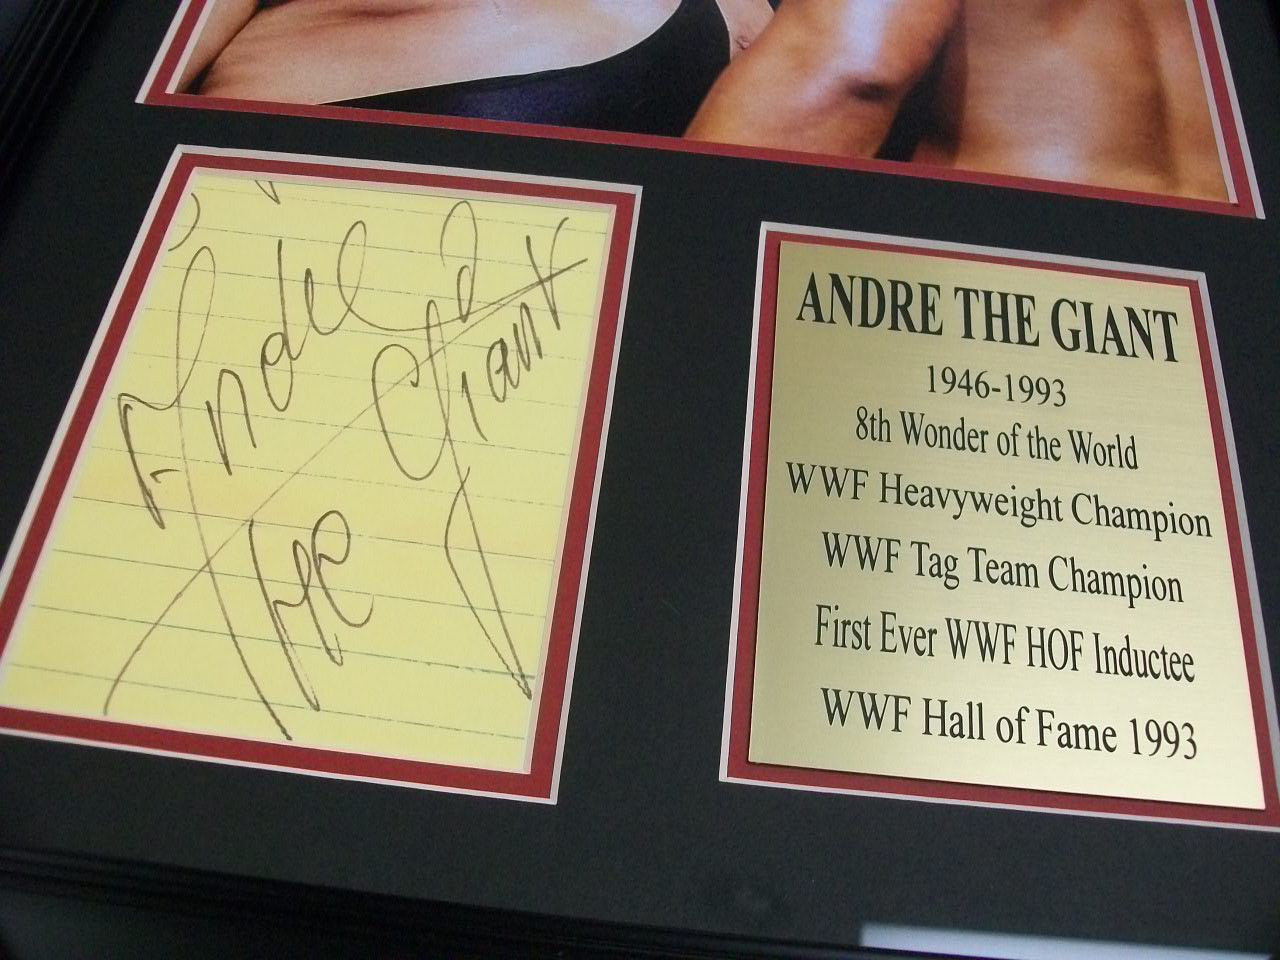 Andre
The
Giant
ANDRE THE GIANT
1946-1993
8th Wonder of the World
WWF Heavyweight Champion
WWF Tag Team Champion
First Ever WWF HOF Inductee
WWF Hall of Fame 1993